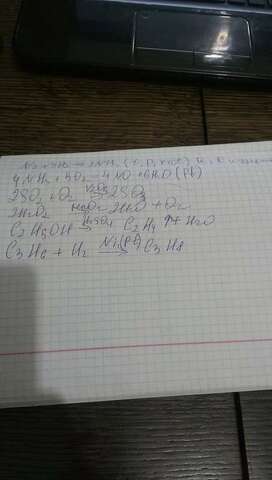 4NH₃ + 5O₂ → 4NO + 6H₂O (Pt)
2SO₂ + O₂ V₂O₅→ 2SO₃
2H₂O₂ → 2H₂O + O₂
C₂H₅OH H₂SO₄→ C₂H₄ ↑ + H₂O
C₃H₆ + H₂ Ni(Pt)→ C₃H₈